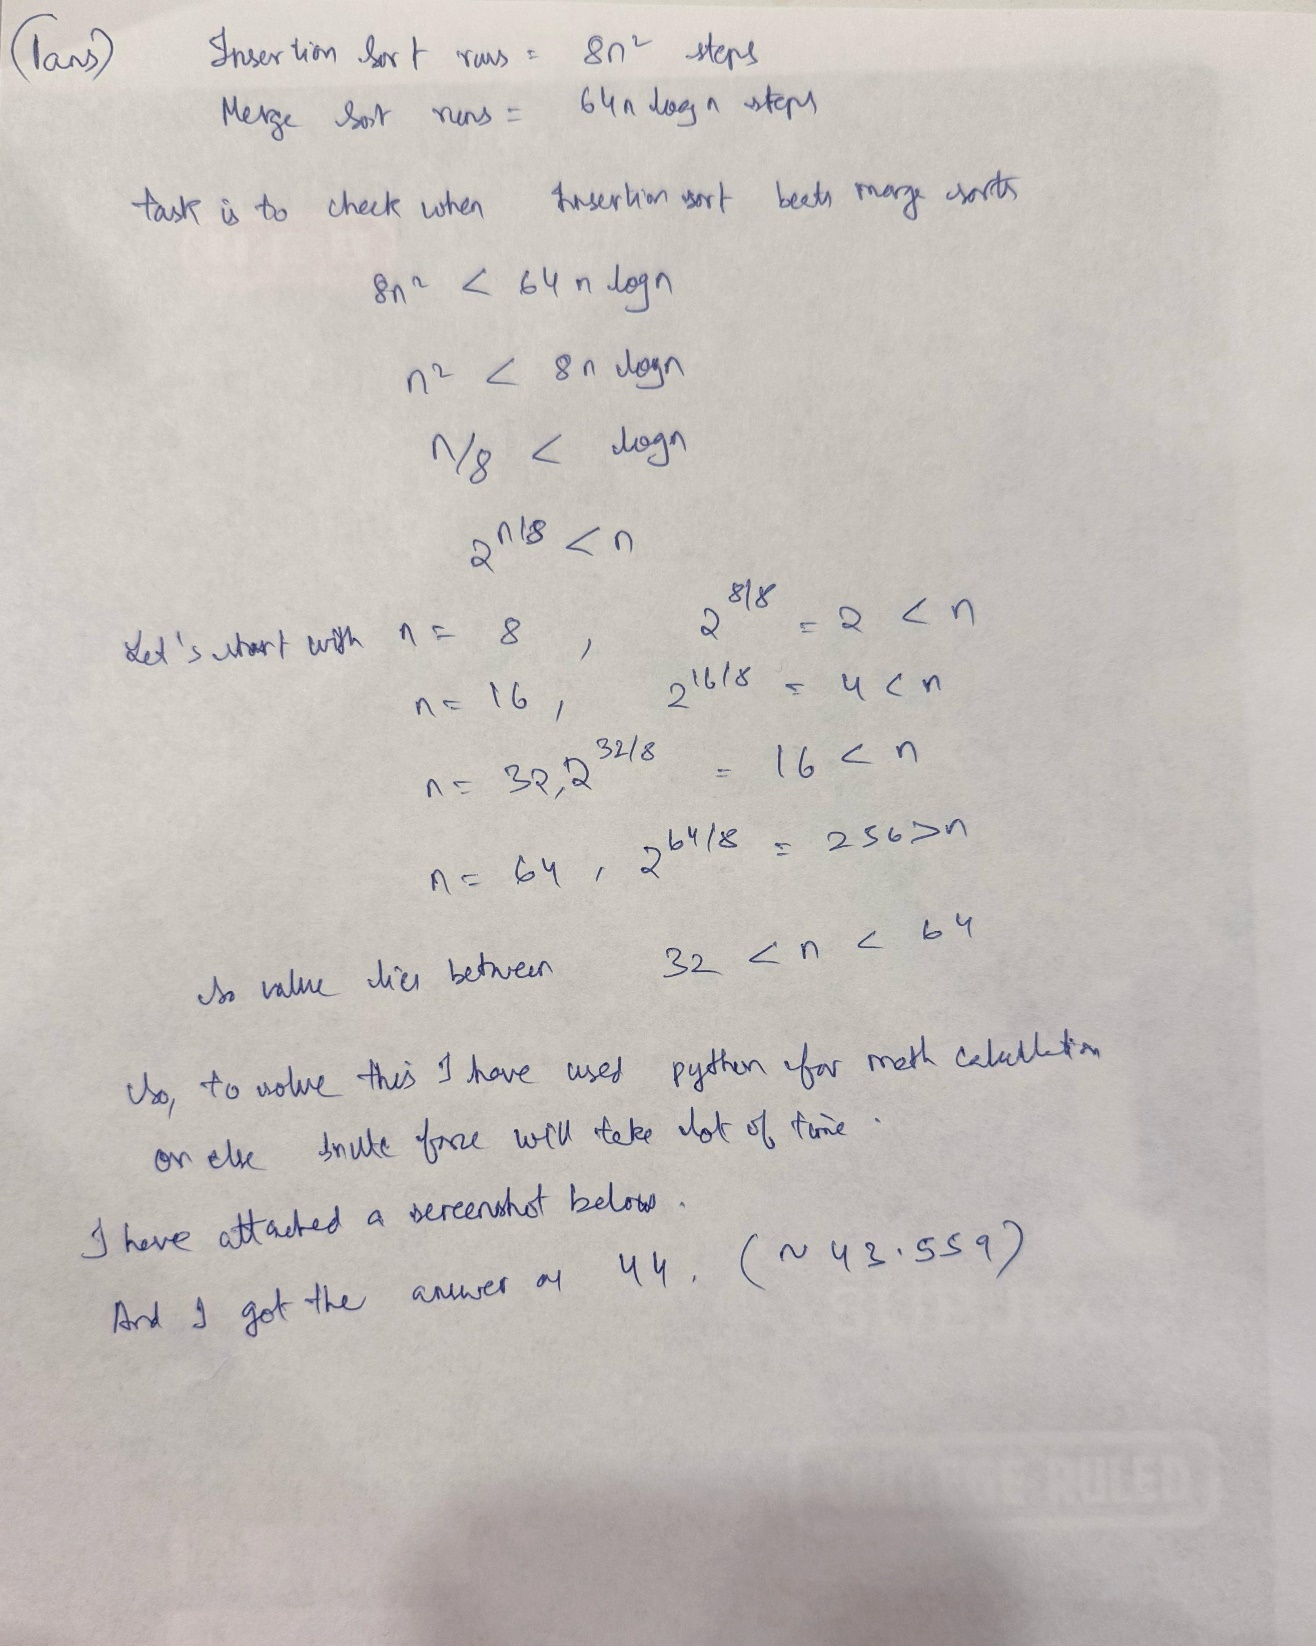 (1ans) Insertion Sort runs = 8n² steps
Merge Sort runs = 64n log n steps
task is to check when Insertion sort beats merge sorts
8n² < 64 n logn
n² < 8n logn
n/8 < logn
2^(n/8) < n
Let's start with n = 8 , 2^(8/8) = 2 < n
n = 16 , 2^(16/8) = 4 < n
n = 32, 2^(32/8) = 16 < n
n = 64 , 2^(64/8) = 256 > n
So value lies between 32 < n < 64
So, to solve this I have used python for math calculation
or else brute force will take lot of time.
I have attached a screenshot below.
And I got the answer as 44. (~ 43.559)